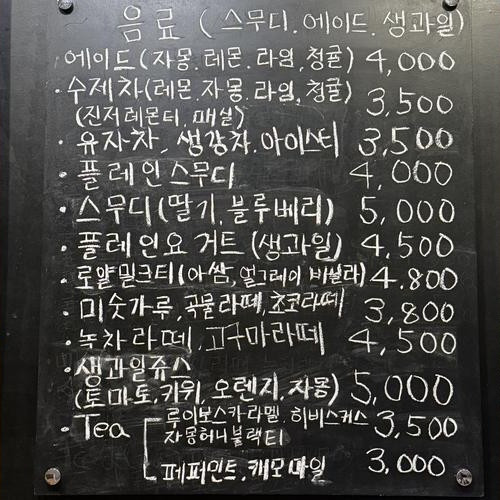 음료 (스무디.에이드.생과일)
에이드(자몽.레몬.라임,청귤) 4,000
·수제차(레몬.자몽.라임,청귤) 3,500
(진저레몬티, 매실)
·유자차, 생강차.아이스티 3,500
·플레인스무디 4,000
·스무디(딸기.블루베리) 5,000
·플레인요거트(생과일) 4,500
·로얄밀크티(아쌈, 얼그레이 바닐라) 4.800
·미숫가루,곡물라떼,쵸코라떼 3,800
·녹차라떼,고구마라떼 4,500
·생과일쥬스
(토마토.키위,오렌지,자몽) 5,000
·Tea 루이보스카라멜.히비스커스 3,500
자몽허니블랙티
페퍼민트.캐모마일 3,000